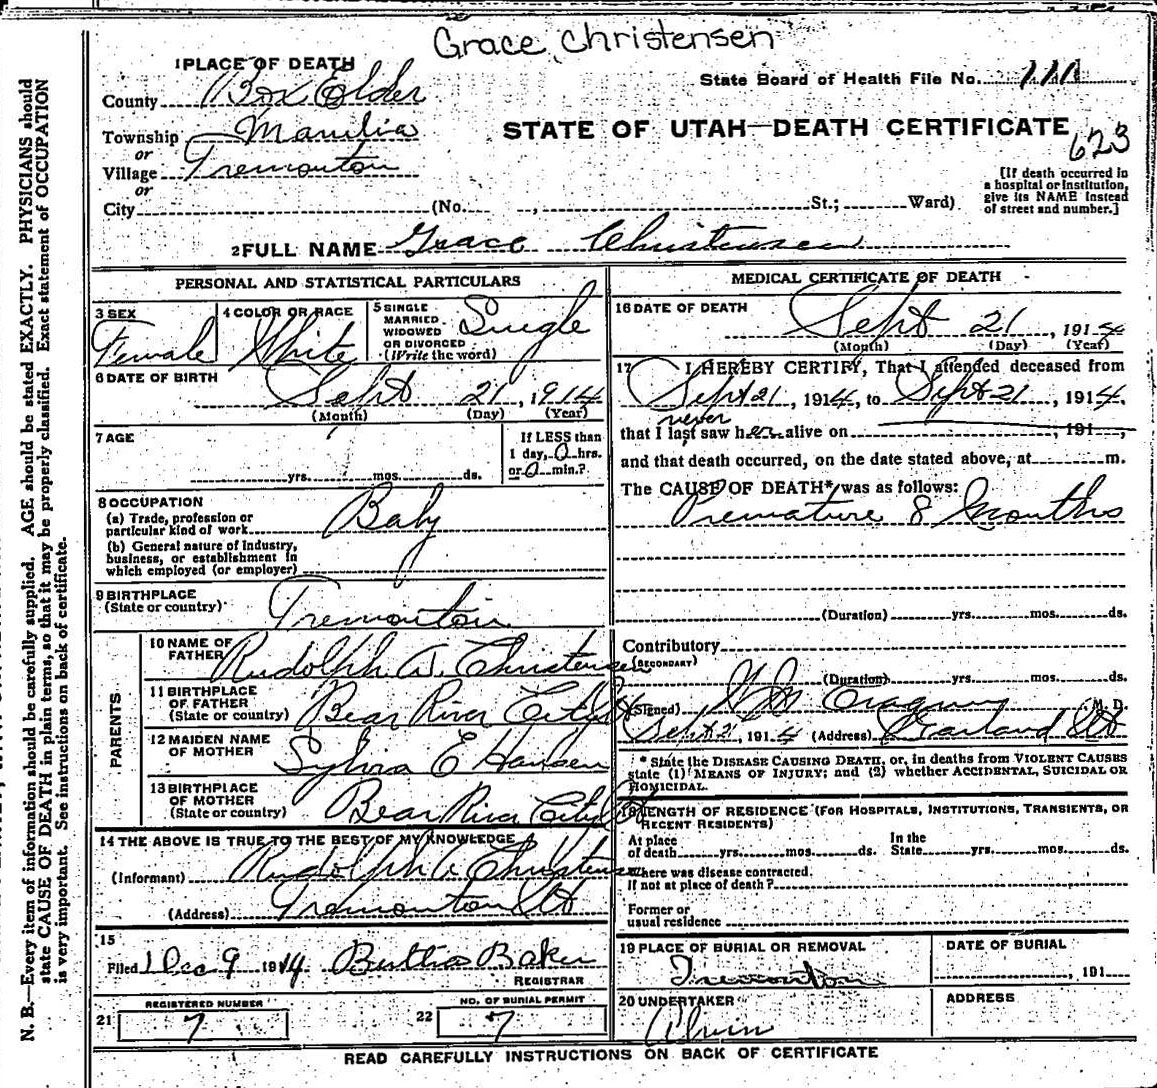 Grace Christensen
1 PLACE OF DEATH
State Board of Health File No. 111
County Box Elder
STATE OF UTAH—DEATH CERTIFICATE
623
Township
or
Village Tremonton
or
City (No. , St.; Ward)
[If death occurred in a hospital or institution, give its NAME instead of street and number.]
2 FULL NAME Grace Christensen
PERSONAL AND STATISTICAL PARTICULARS
3 SEX
Female
4 COLOR OR RACE
White
5 SINGLE
MARRIED
WIDOWED
OR DIVORCED
(Write the word)
Single
6 DATE OF BIRTH
Sept 21, 1914
(Month) (Day) (Year)
7 AGE
yrs. mos. ds.
If LESS than
1 day, 0 hrs.
or 0 min.?
8 OCCUPATION
(a) Trade, profession or
particular kind of work
Baby
(b) General nature of industry,
business, or establishment in
which employed (or employer)
9 BIRTHPLACE
(State or country)
Tremonton
PARENTS
10 NAME OF
FATHER
Rudolph A. Christensen
11 BIRTHPLACE
OF FATHER
(State or country)
Bear River City Ut
12 MAIDEN NAME
OF MOTHER
Sylvia E Hansen
13 BIRTHPLACE
OF MOTHER
(State or country)
Bear River City Ut
14 THE ABOVE IS TRUE TO THE BEST OF MY KNOWLEDGE
(Informant) Rudolph A Christensen
(Address) Tremonton Ut
15
Filed Dec 9 1914 Bertha Baker
REGISTRAR
REGISTERED NUMBER
21 7
NO. OF BURIAL PERMIT
22 7
MEDICAL CERTIFICATE OF DEATH
16 DATE OF DEATH
Sept 21, 1914
(Month) (Day) (Year)
17 I HEREBY CERTIFY, That I attended deceased from
Sept 21, 1914, to Sept 21, 1914,
never
that I last saw her alive on , 191 ,
and that death occurred, on the date stated above, at m.
The CAUSE OF DEATH* was as follows:
Premature 8 Months
(Duration) yrs. mos. ds.
Contributory
(SECONDARY)
(Duration) yrs. mos. ds.
(Signed) M. D.
Sept 21, 1914 (Address) Garland Ut
* State the DISEASE CAUSING DEATH, or, in deaths from VIOLENT CAUSES
state (1) MEANS OF INJURY; and (2) whether ACCIDENTAL, SUICIDAL OR
HOMICIDAL.
18 LENGTH OF RESIDENCE (FOR HOSPITALS, INSTITUTIONS, TRANSIENTS, OR
RECENT RESIDENTS)
At place In the
of death yrs. mos. ds. State yrs. mos. ds.
Where was disease contracted,
if not at place of death?
Former or
usual residence
19 PLACE OF BURIAL OR REMOVAL
Tremonton
DATE OF BURIAL
, 191
20 UNDERTAKER
Alvin
ADDRESS
READ CAREFULLY INSTRUCTIONS ON BACK OF CERTIFICATE
N. B.—Every item of information should be carefully supplied. AGE should be stated EXACTLY. PHYSICIANS should
state CAUSE OF DEATH in plain terms, so that it may be properly classified. Exact statement of OCCUPATION
is very important. See instructions on back of certificate.